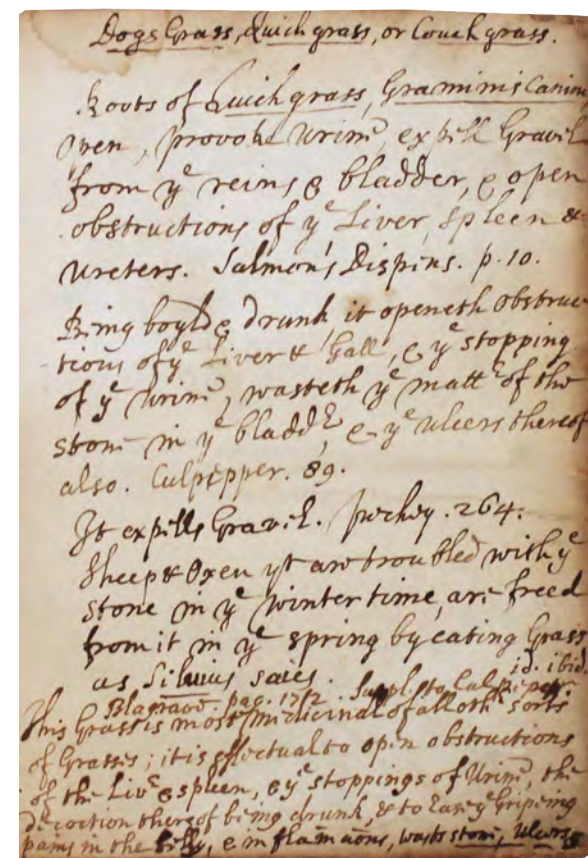 Dogs Grass, Quich grass, or Couch grass.
Roots of Quich grass, Graminis Canini
open, provoke Urine, expell Gravel
from yͤ reins & bladder, & open
obstructions of yͤ Liver, Spleen &
Ureters. Salmon's Dispens. p. 10.
Being boyld & drunk, it openeth obstruc
tions of yͤ Liver & Gall, & yͤ stopping
of yͤ Urine, wasteth yͤ mattͬ of the
stone in yͤ bladdͬ, & yͤ ulcers thereof
also. Culpepper. 89.
It expells Gravel. Pechey. 264.
Sheep & Oxen yt are troubled with yͤ
stone in yͤ winter time, are freed
from it in yͤ spring by eating Grass
as Silvius saies. id. ibid.
Blagrave. pag. 172. Suppl. to Culpeper
This Grass is most medicinal of all othͬ sorts
of Grasses; it is effectual to open obstructions
of the Livͬ & spleen, & yͤ stoppings of Urine, the
decoction thereof being drunk, & to ease yͤ Gripeing
pains in the Belly, & inflam̄aōns, wasts stone, Ulcers